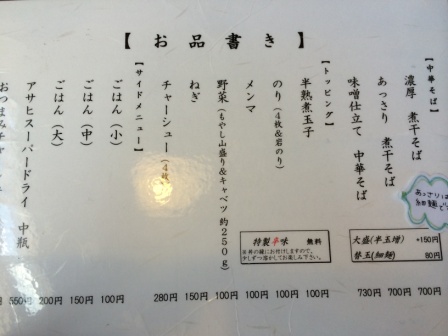 【お品書き】
【中華そば】
濃厚 煮干そば 700円
あっさり 煮干そば 700円
味噌仕立て 中華そば 730円
大盛(半玉増) +150円
替玉(細麺) 80円
あっさりは
細麺で
【トッピング】
半熟煮玉子 100円
のり(4枚&岩のり) 100円
メンマ 100円
野菜(もやし山盛り&キャベツ 約250g) 100円
ねぎ 150円
チャーシュー(4枚) 280円
特製辛味 無料
お丼の縁にお付けしますので、
少しずつ溶かしてお楽しみ下さい。
【サイドメニュー】
ごはん(小) 100円
ごはん(中) 150円
ごはん(大) 200円
アサヒスーパードライ 中瓶 550円
おつまみチャーシュー